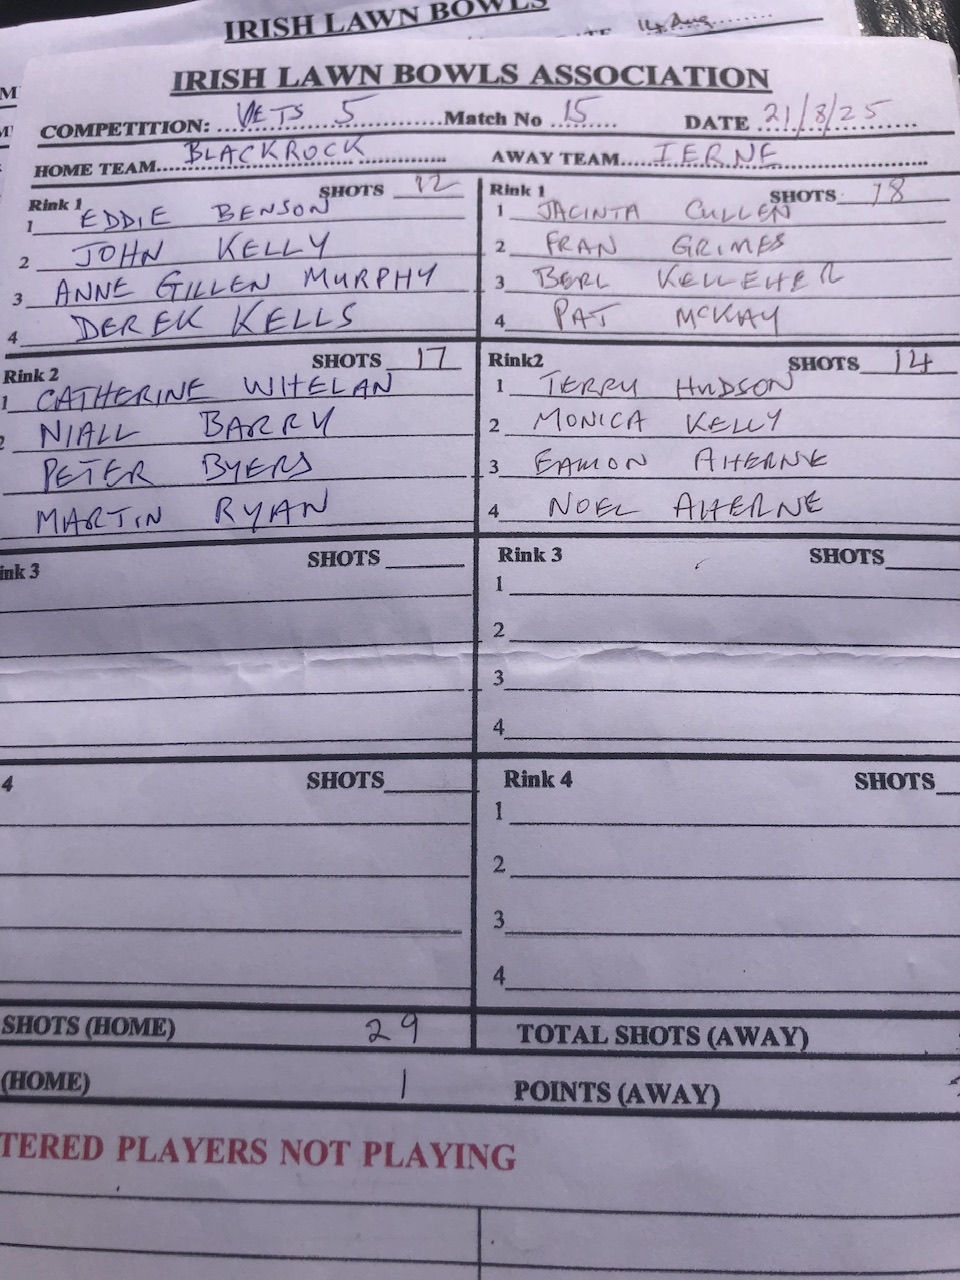 IRISH LAWN BOWLS
14 Aug
IRISH LAWN BOWLS ASSOCIATION
COMPETITION: VETS 5 Match No 15 DATE 21/8/25
HOME TEAM BLACKROCK AWAY TEAM IERNE
Rink 1 SHOTS 12
1 EDDIE BENSON
2 JOHN KELLY
3 ANNE GILLEN MURPHY
4 DEREK KELLS
Rink 1 SHOTS 18
1 JACINTA CULLEN
2 FRAN GRIMES
3 BERL KELLEHER
4 PAT MCKAY
Rink 2 SHOTS 17
1 CATHERINE WHELAN
2 NIALL BARRY
PETER BYERS
MARTIN RYAN
Rink2 SHOTS 14
1 TERRY HUDSON
2 MONICA KELLY
3 EAMON AHERNE
4 NOEL AHERNE
ink 3 SHOTS
Rink 3 SHOTS
1
2
3
4
4 SHOTS
Rink 4 SHOTS
1
2
3
4
SHOTS (HOME) 29 TOTAL SHOTS (AWAY)
(HOME) 1 POINTS (AWAY)
TERED PLAYERS NOT PLAYING